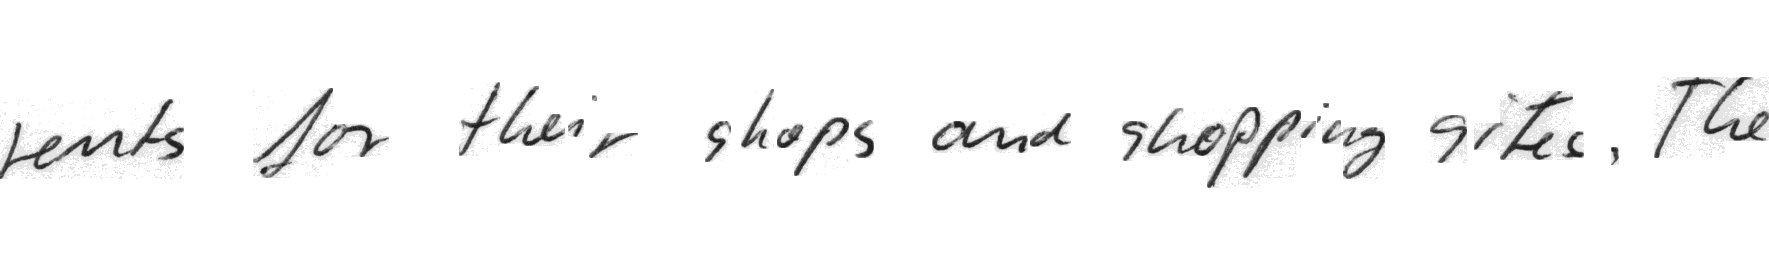 rents for their shops and shopping sites. The